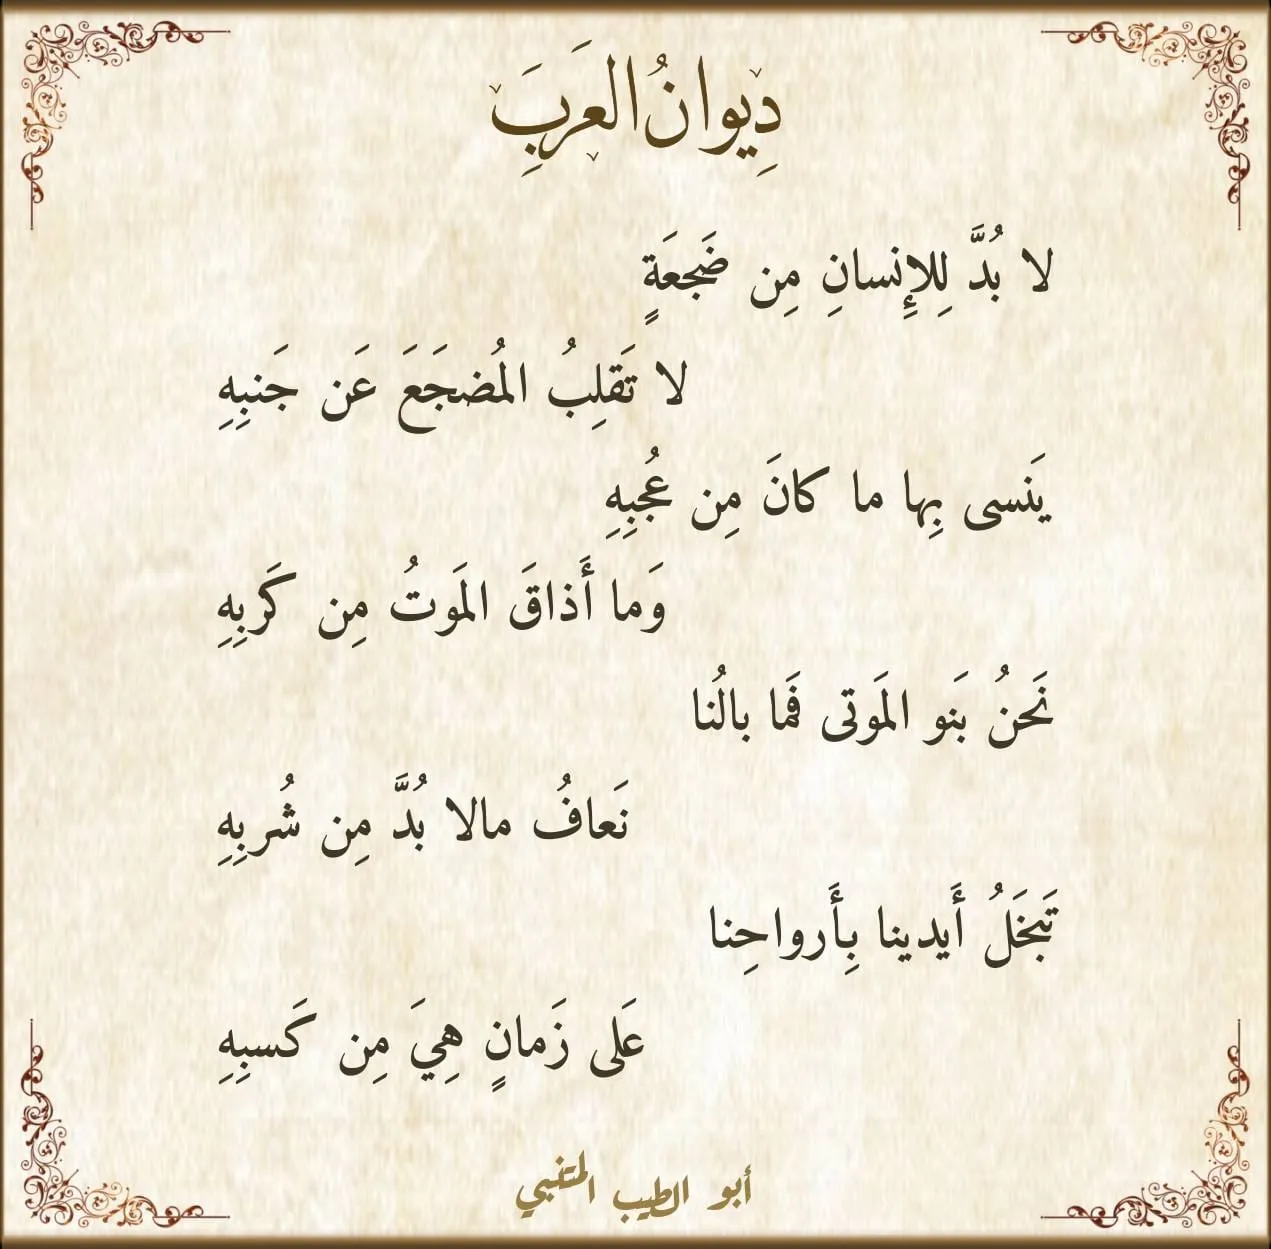 دِيوانُ العَرَبِ
لا بُدَّ لِلإِنسانِ مِن ضَجعَةٍ
لا تَقلِبُ المُضجَعَ عَن جَنبِهِ
يَنسى بِها ما كانَ مِن عُجبِهِ
وَما أَذاقَ المَوتُ مِن كَربِهِ
نَحنُ بَنو المَوتى فَما بالُنا
نَعافُ مالا بُدَّ مِن شُربِهِ
تَبخَلُ أَيدينا بِأَرواحِنا
عَلى زَمانٍ هِيَ مِن كَسبِهِ
أبو الطيب المتنبي